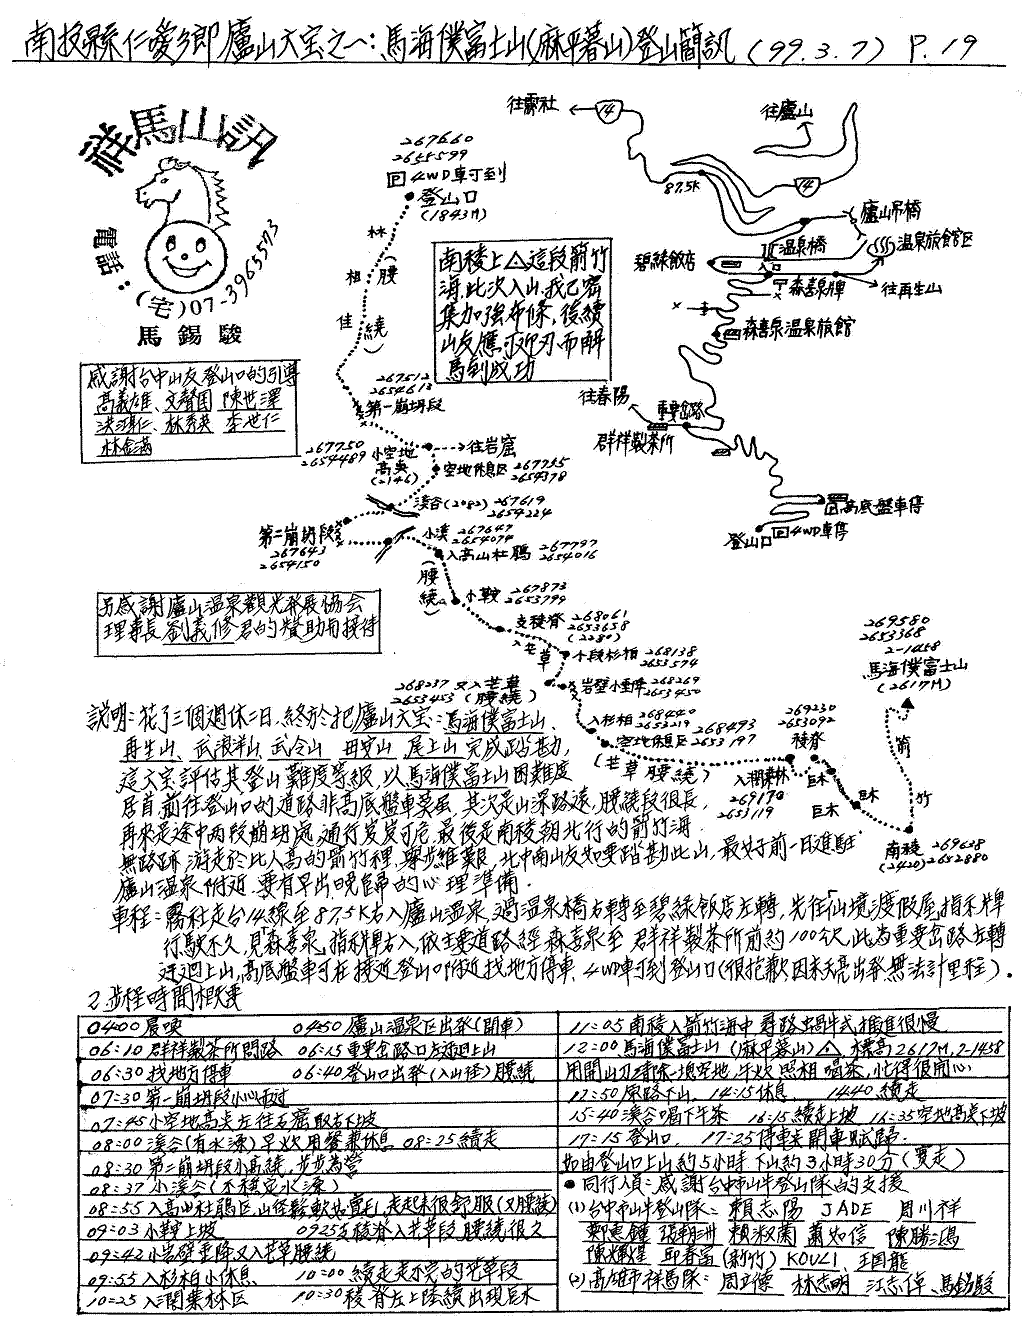 南投縣仁愛鄉廬山六宝之一:馬海僕富士山(麻平暮山)登山簡訊(99.3.7) P.19
祥馬山訊
電話:(宅)07-3965573
馬錫駿
感謝台中山友登山口的引導
高義雄、文聲國 陳世澤
洪鴻仁、林秀英 李世仁
林金滿
267660
2655599
P 4WD車可到
登山口
(1843M)
林
相
佳
(腰
繞)
南稜上△這段箭竹
海,此次入山,我已密
集加強布條,後續
山友應可迎刃而解
馬到成功
往霧社
14
往廬山
87.5K
14
廬山吊橋
溫泉橋
溫泉旅館區
碧綠飯店
入口
森善泉牌
往再生山
森善泉溫泉旅館
往春陽
重要岔路
群祥製茶所
P 高底盤車停
登山口 P 4WD車停
267512
2654613
第一崩坍段
267750
2654489
小空地
高奌
(2146)
往岩窟
空地休息區 267755
2654378
溪谷(2082) 267619
2654224
第二崩坍段
267643
2654150
小溪 267647
2654074
入高山杜鵑 267797
2654016
(腰
繞)
小鞍 267873
2653799
支稜脊 268061
2653658
(2280)
入芒草
小段杉柏 268138
2653574
268237 又入芒草
2653453 (腰繞)
岩壁小垂降 268269
2653450
入杉柏 268440
2653219
空地休息區 268493
2653197
(芒草腰繞)
269230
2653092
稜脊
入潤葉林
269170
2653119
巨木
巨木
巨木
269580
2653368
2-1458
馬海僕富士山
(2617M)
箭
竹
南稜 269638
(2420) 2652880
另感謝廬山溫泉觀光發展協會
理事長劉義修君的贊助與接待
說明:花了三個週休二日,終於把廬山六宝:馬海僕富士山、
再生山、武浪洋山、武令山、母安山、尾上山完成踏勘,
這六宝評估其登山難度等級,以馬海僕富士山困難度
居首,前往登山口的道路非高底盤車莫屬,其次是山深路遠,腰繞段很長,
再來是途中兩段崩坍處,通行岌岌可危,最後是南稜朝北行的箭竹海
無路跡,游走於比人高的箭竹裡,舉步維艱,北中南山友如要踏勘此山,最好前一日進駐
廬山溫泉附近,要有早出晚歸的心理準備.
車程:霧社走台14線至87.5K右入廬山溫泉,過溫泉橋右轉至碧綠飯店左轉,先往「仙境渡假屋」指示牌
行駛不久,見「森善泉」指標右入,依主要道路經森善泉至群祥製茶所前約100公尺,此為重要岔路左轉
迂迴上山,高底盤車可在接近登山口附近找地方停車,4WD車可到登山口(很抱歉因未天亮出發無法計里程).
2.步程時間概要
04:00 晨喚 04:50 廬山溫泉區出發(開車)
06:10 群祥製茶所問路 06:15 重要岔路口左迂迴上山
06:30 找地方停車 06:40 登山口出發(入山徑)腰繞
07:30 第一崩坍段小心通過
07:45 小空地高奌左往石窟取右下坡
08:00 溪谷(有水源)早炊用餐兼休息 08:25 續走
08:30 第二崩坍段小高繞,步步為營
08:37 小溪谷(不穩定水源)
08:55 入高山杜鵑區,山徑鬆軟如賣毛,走起來很舒服(又腰繞)
09:03 小鞍上坡 0925 支稜脊入芒草段腰繞很久
09:42 小岩壁垂降又入芒草腰繞
09:55 入杉柏小休息 10:00 續走走不完的芒草段
10:25 入潤葉林區 10:30 稜脊左上陸續出現巨木
11:05 南稜入箭竹海中尋路蝸牛式推進很慢
12:00 馬海僕富士山(麻平暮山)△ 標高2617M,2-1458
用開山刀清除一塊空地,午炊照相喝茶,忙得很開心
12:50 原路下山, 14:15 休息 14:40 續走
15:40 溪谷喝下午茶 16:15 續走上坡 16:35 空地高奌下坡
17:15 登山口. 17:25 停車處開車賦歸.
如由登山口上山約5小時 下山約3小時30分(實走)
● 同行人員:感謝台中市山牛登山隊的支援
(1)台中市山牛登山隊: 賴志陽 JADE 周川祥
鄭惠鐘 張朝洲 賴淑蘭 蕭如信 陳勝鴻
陳熾煌 邱春富(新竹) KOUZI 王國龍
(2)高雄市祥馬隊: 周立偉 林志明 江志倬、馬錫駿